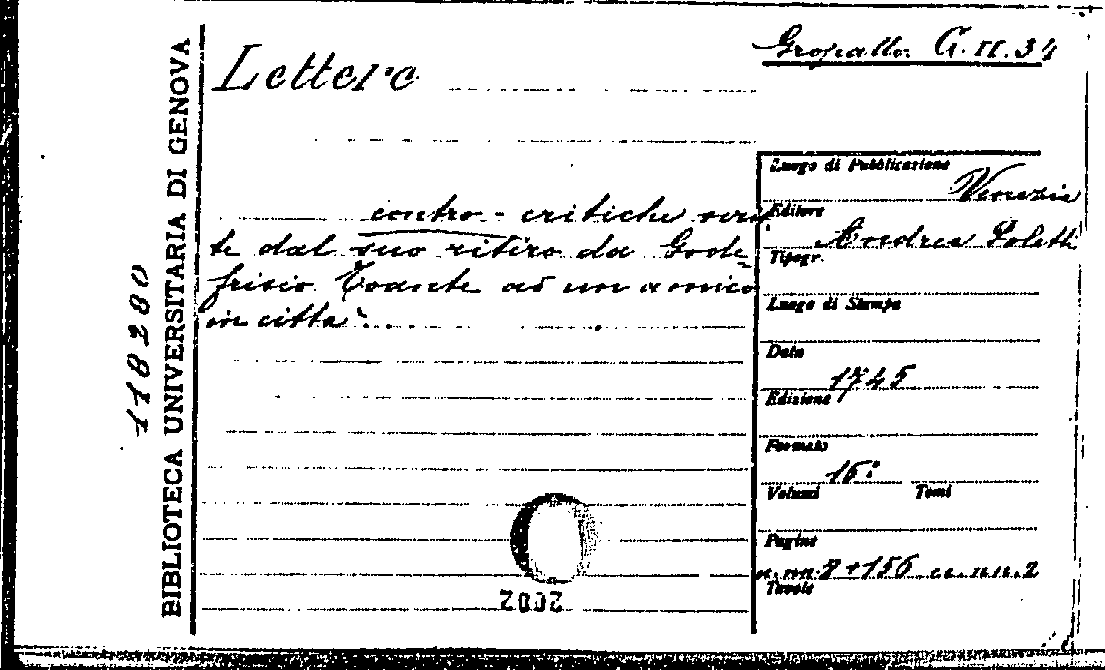 Gropallo. G.II.34
Lettere
contro-critiche scrit
te dal suo ritiro da Gode=
frisio Toante ad un amico
in città.
BIBLIOTECA UNIVERSITARIA DI GENOVA
118280
Luogo di Pubblicazione
Venezia
Editore
Andrea Poletti
Tipogr.
Luogo di Stampa
Data
1745
Edizione
Formato
16°
Volumi Tomi
Pagine
p. nn. 8+156 cc. nn. 2
Tavole
2002